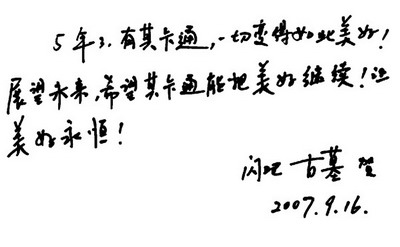 5年了,有其卡通,一切变得如此美好!
展望未来,希望其卡通能把美好继续!让
美好永恒!
闪吧 古墓 贺
2007.9.16.